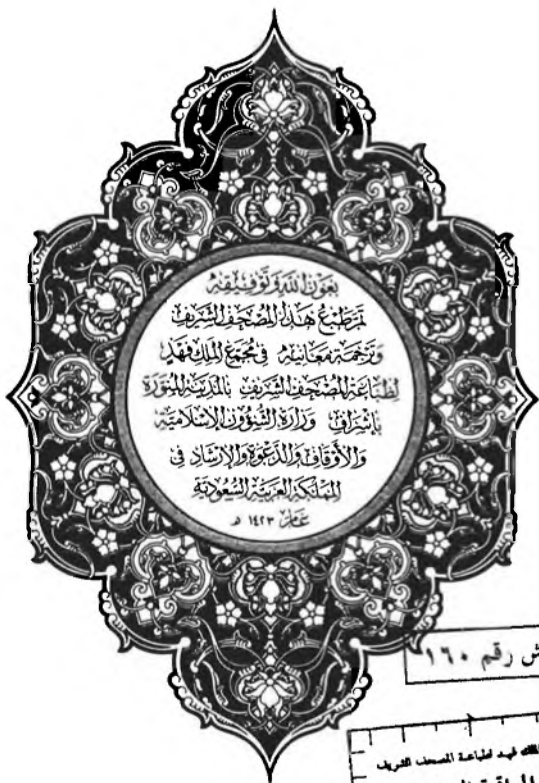 بعون الله وتوفيقه
تم طبع هذا المصحف الشريف
وترجمة معانيه في مجمع الملك فهد
لطباعة المصحف الشريف بالمدينة المنورة
بإشراف وزارة الشؤون الإسلامية
والأوقاف والدعوة والإرشاد في
المملكة العربية السعودية
عام ١٤٢٣ هـ
ش رقم ١٦٠
فهد لطباعة المصحف الشريف